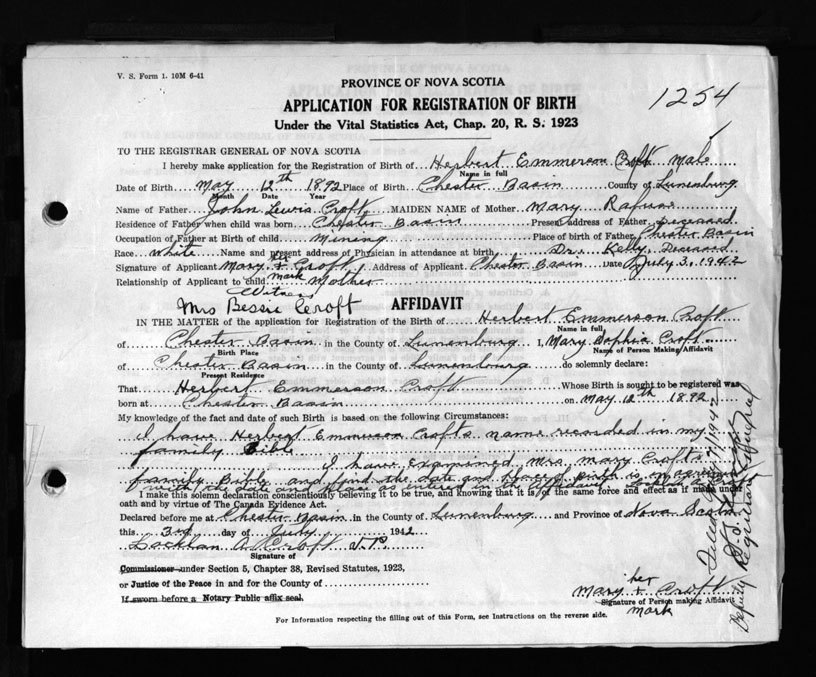 V. S. Form 1. 10M 6-41
PROVINCE OF NOVA SCOTIA
1254
APPLICATION FOR REGISTRATION OF BIRTH
Under the Vital Statistics Act, Chap. 20, R. S. 1923
TO THE REGISTRAR GENERAL OF NOVA SCOTIA
I hereby make application for the Registration of Birth of Herbert Emmerson Croft Male
Name in full
Date of Birth May 12th 1892 Place of Birth Chester Basin County of Lunenburg
Month Date Year
Name of Father John Lewis Croft MAIDEN NAME of Mother Mary Rafuse
Residence of Father when child was born Chester Basin Present address of Father Deceased
Occupation of Father at Birth of child Mining Place of birth of Father Chester Basin
Race White Name and present address of Physician in attendance at birth Dr. Kelly, Deceased
Signature of Applicant Mary her + Croft Address of Applicant Chester Basin Date July 3, 1942
mark
Relationship of Applicant to child Mother
Witness
Mrs Bessie Croft AFFIDAVIT
IN THE MATTER of the application for Registration of the Birth of Herbert Emmerson Croft
Name in full
of Chester Basin in the County of Lunenburg I, Mary Sophia Croft
Birth Place Name of Person Making Affidavit
of Chester Basin in the County of Lunenburg do solemnly declare:
Present Residence
That Herbert Emmerson Croft Whose Birth is sought to be registered was
born at Chester Basin on May 12th 1892
My knowledge of the fact and date of such Birth is based on the following Circumstances:
I have Herbert Emmerson Crofts name recorded in my
family Bible
I have examined Mrs Mary Crofts
family Bible and find the date and place of birth is in agreement
with the date and place as entered in the affidavit
I make this solemn declaration conscientiously believing it to be true, and knowing that it is of the same force and effect as if made under
oath and by virtue of The Canada Evidence Act.
Declared before me at Chester Basin in the County of Lunenburg and Province of Nova Scotia
this 3rd day of July 1942
Lochlan A Croft J.P.
Signature of
Commissioner under Section 5, Chapter 38, Revised Statutes, 1923,
or Justice of the Peace in and for the County of
If sworn before a Notary Public affix seal.
her
Mary + Croft
Signature of Person making Affidavit
mark
For Information respecting the filling out of this Form, see Instructions on the reverse side.
Filed 1942
Deputy Registrar General